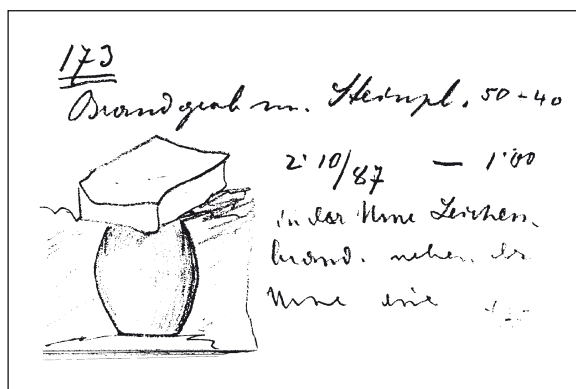 173
Brandgrab m. Steinpl. 50-40
2·10/87 — 1·00
in der Urne Leichen-
brand. neben der
Urne eine